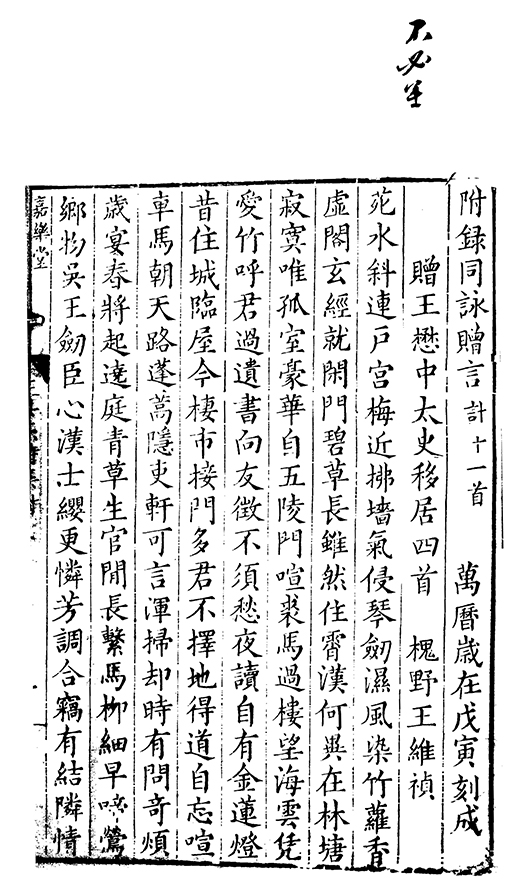 不必
附録同詠贈言計十一首　萬曆歲在戊寅刻成
贈王懋中太史移居四首　槐野王維禎
苑水斜連戸宮梅近拂墻氣侵琴劒濕風染竹蘿香
虛閣玄經就閑門碧草長雖然住霄漢何異在林塘
寂寞唯孤室豪華自五陵門喧裘馬過樓望海雲凭
愛竹呼君過遺書向友徵不須愁夜讀自有金蓮燈
昔住城臨屋今棲市接門多君不擇地得道自忘喧
車馬朝天路蓬蒿隱吏軒可言渾掃却時有問奇煩
歲宴春將起遶庭青草生官閒長繫馬柳細早啼鶯
鄉物吳王劒臣心漢士纓更憐芳調合竊有結隣情
嘉樂堂